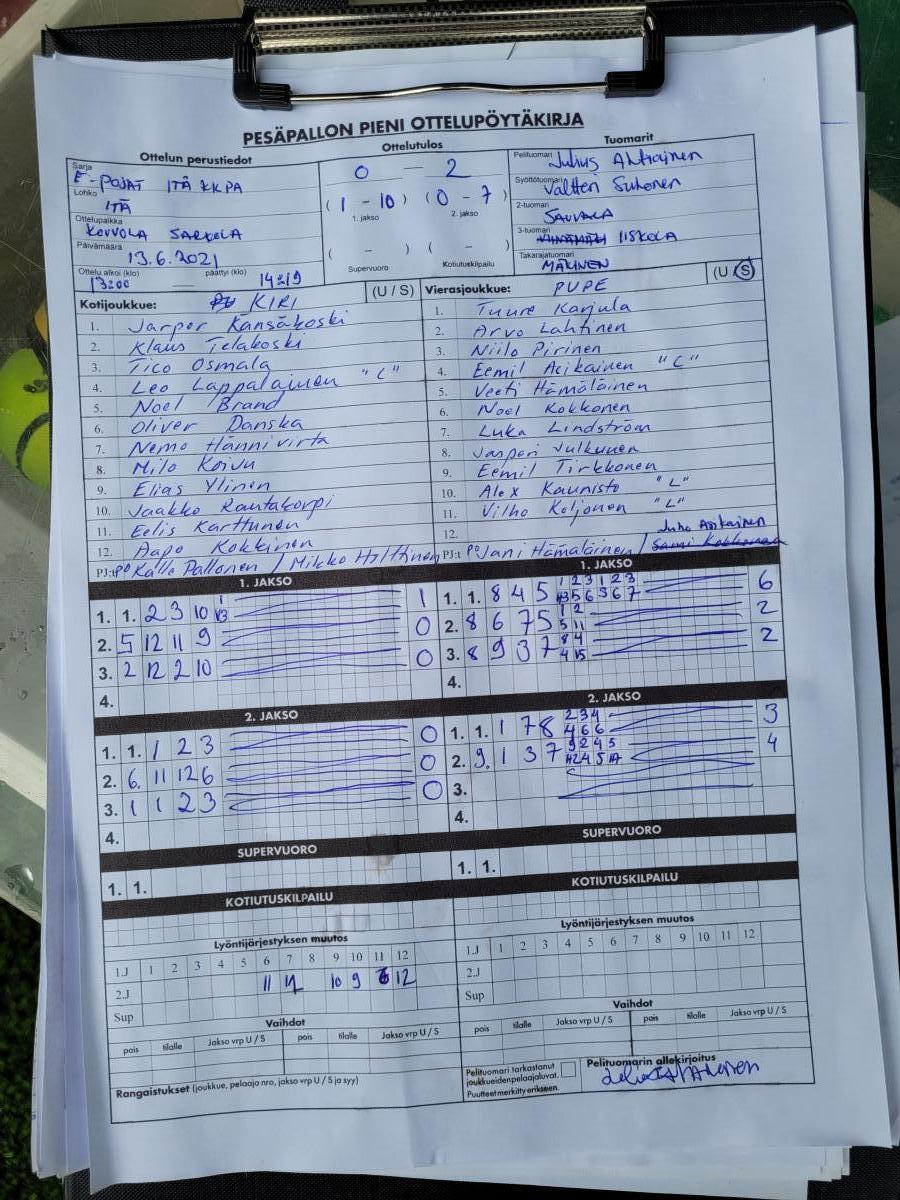 PESÄPALLON PIENI OTTELUPÖYTÄKIRJA
Ottelun perustiedot
Ottelutulos
Tuomarit
Sarja
E-POJAT ITÄ KKPA
Lohko
ITÄ
Ottelupaikka
KOUVOLA SARKOLA
Päivämäärä
13.6.2021
Ottelu alkoi (klo) 13:00 päättyi (klo) 14:19
0 - 2
(1 - 10) (0 - 7)
1. jakso 2. jakso
( - ) ( - )
Supervuoro Kotiutuskilpailu
Pelituomari Julius Ahtiainen
Syöttötuomari Valtteri Suhonen
2-tuomari SAUVALA
3-tuomari IISKOLA
Takarajatuomari MÄKINEN
Kotijoukkue: KIRI (U / S)
1. Jarper Kansäkoski
2. Klaus Telakoski
3. Tico Osmala
4. Leo Lappalainen "C"
5. Noel Brand
6. Oliver Danska
7. Nemo Hännivirta
8. Milo Koivu
9. Elias Ylinen
10. Jaakko Rautakorpi
11. Eelis Karttunen
12. Aapo Kokkinen
PJ:t PO Kalle Pallonen / Mikko Hilttunen
Vierasjoukkue: PUPE (U / S)
1. Tuure Karjula
2. Arvo Lahtinen
3. Niilo Pirinen
4. Eemil Asikainen "C"
5. Veeti Hämäläinen
6. Noel Kokkonen
7. Luka Lindström
8. Jasperi Julkunen
9. Eemil Tirkkonen
10. Alex Kaunisto "L"
11. Vilho Koljonen "L"
12.
Juho Asikainen
PJ:t PO Jani Hämäläinen / Sami Kokkonen
1. JAKSO
1. 1. 2 3 10 1
2. 5 12 11 9 0
3. 2 12 2 10 0
4.
1. JAKSO
1. 1. 8 4 5 1 2 3 1 2 3 6
2. 8 6 7 5 1 2 2
5 11
3. 8 9 3 7 8 4 2
4 15
4.
2. JAKSO
1. 1. 1 2 3 0
2. 6. 11 12 6 0
3. 1 1 2 3 0
4.
2. JAKSO
1. 1. 1 7 8 2 3 4 3
4 6 6
2. 9. 1 3 7 9 2 4 5 4
3.
4.
SUPERVUORO
1. 1.
SUPERVUORO
1. 1.
KOTIUTUSKILPAILU
KOTIUTUSKILPAILU
Lyöntijärjestyksen muutos
1.J 1 2 3 4 5 6 7 8 9 10 11 12
2.J 11 10 9 12
Sup
Lyöntijärjestyksen muutos
1.J 1 2 3 4 5 6 7 8 9 10 11 12
2.J
Sup
Vaihdot
pois tilalle Jakso vrp U / S pois tilalle Jakso vrp U / S
Vaihdot
pois tilalle Jakso vrp U / S pois tilalle Jakso vrp U / S
Rangaistukset (joukkue, pelaaja nro, jakso vrp U / S ja syy)
Pelituomari tarkastanut
joukkueiden pelaajaluvat.
Puutteet merkitty erikseen.
Pelituomarin allekirjoitus